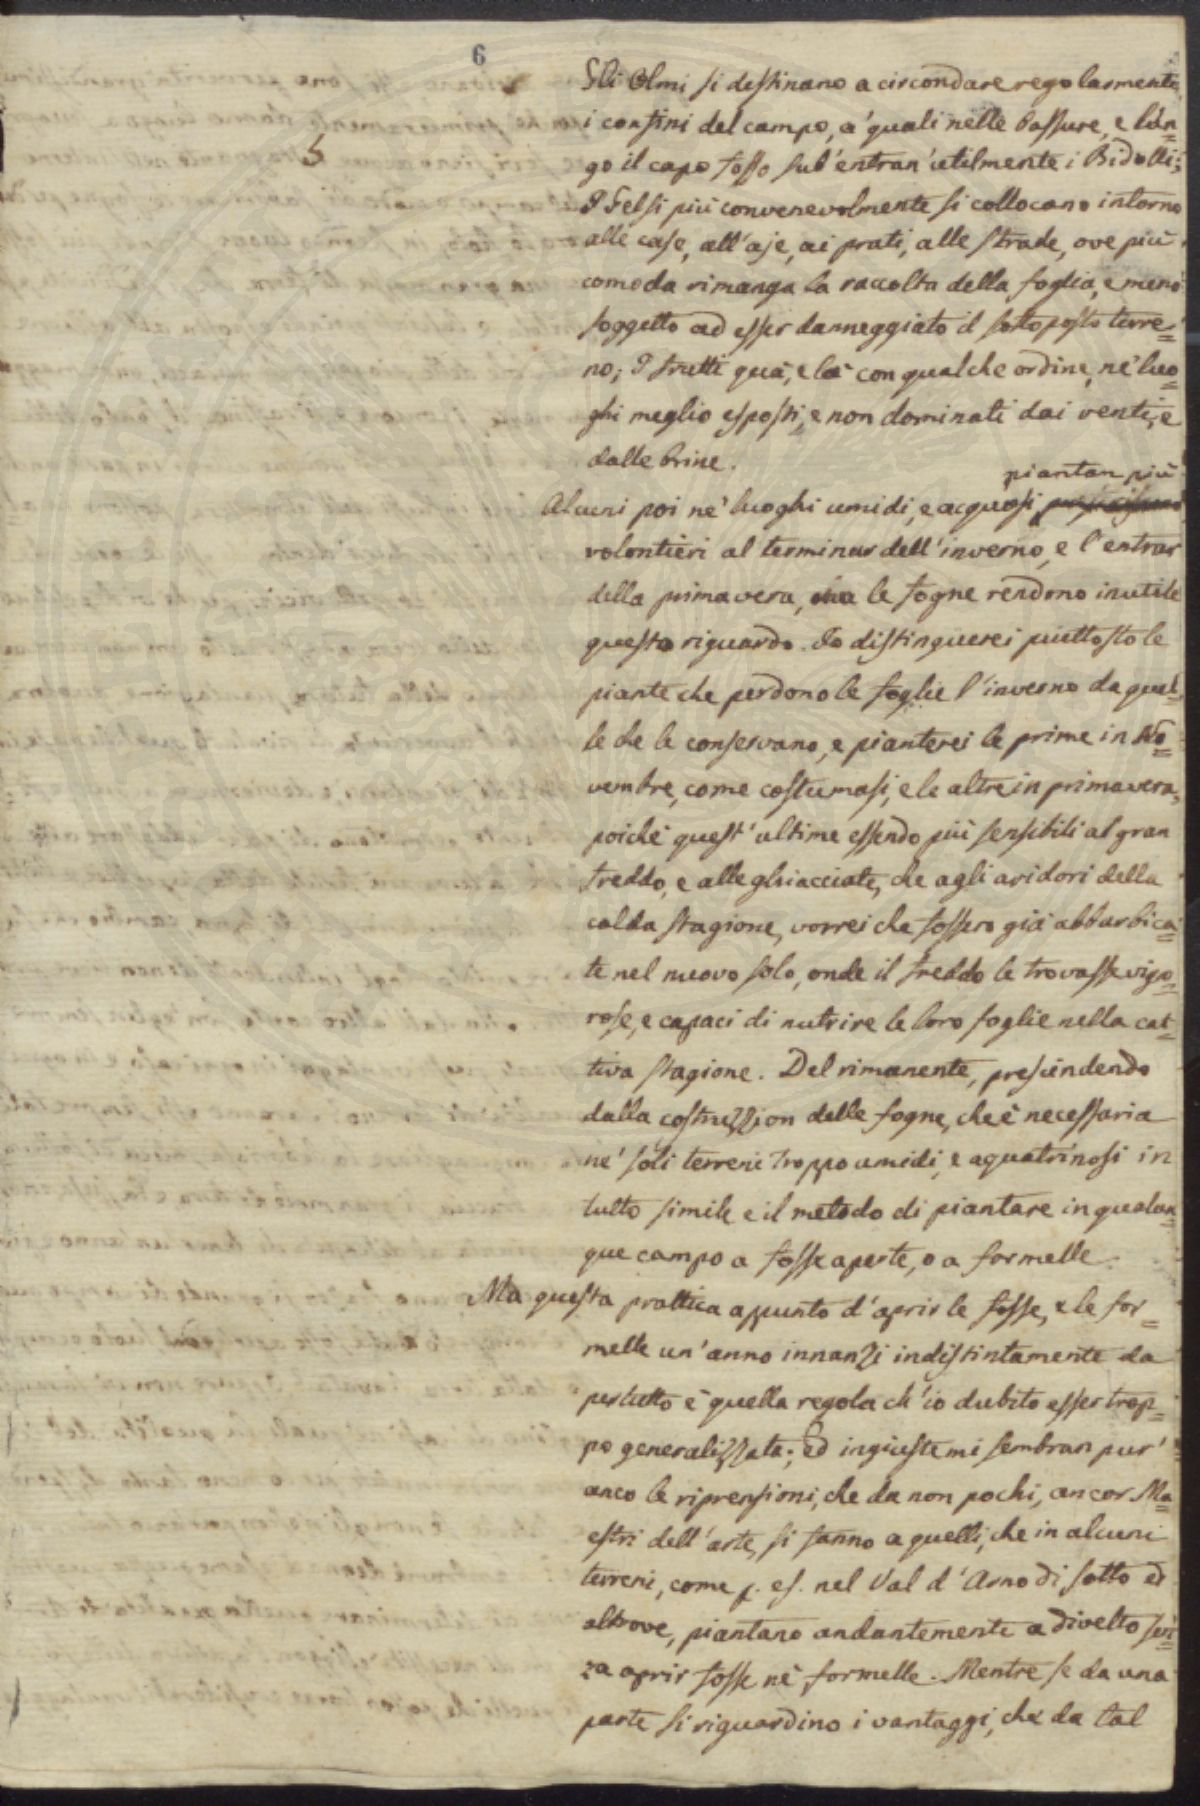 6
5
Gli Olmi si destinano a circondare regolarmente
i confini del campo, a' quali nelle bassure, e lun=
go il capo fosso sub'entran' utilmente i Bidolli;
I Gelsi più convenevolmente si collocano intorno
alle case, all'aje, ai prati, alle strade, ove più
comoda rimanga la raccolta della foglia, e meno
soggetto ad esser danneggiato il sottoposto terre=
no; I frutti quà, e là con qualche ordine, ne' luo=
ghi meglio esposti, e non dominati dai venti, e
dalle brine.
piantan più
Alcuni poi ne' luoghi umidi, e acquosi
volontieri al terminar dell'inverno, e l'entrar
della primavera, ma le fogne rendono inutile
questo riguardo. Io distinguerei piuttosto le
piante che perdono le foglie l'inverno da quel=
le che le conservano, e pianterei le prime in No=
vembre, come costumasi, e le altre in primavera,
poichè quest'ultime essendo più sensibili al gran
freddo, e alle ghiacciate, che agli aridori della
calda stagione, vorrei che fossero già abbarbica=
te nel nuovo solo, onde il freddo le trovasse vigo=
rose, e capaci di nutrire le loro foglie nella cat=
tiva stagione. Del rimanente, prescindendo
dalla costruzzion delle fogne, che è necessaria
ne' soli terreni troppo umidi, e aquatrinosi in
tutto simile è il metodo di piantare in qualun=
que campo a fosse aperte, o a formelle.
Ma questa prattica appunto d'aprir le fosse, e le for=
melle un'anno innanzi indistintamente da
pertutto è quella regola ch'io dubito esser trop=
po generalizzata; Ed ingiuste mi sembran pur'
anco le riprensioni, che da non pochi, ancor Ma=
estri dell'arte, si fanno a quelli, che in alcuni
terreni, come p. es. nel Val d'Arno di sotto ed
altrove, piantano andantemente a divelto sen=
za aprir fosse nè formelle. Mentre se da una
parte si riguardino i vantaggi, che da tal